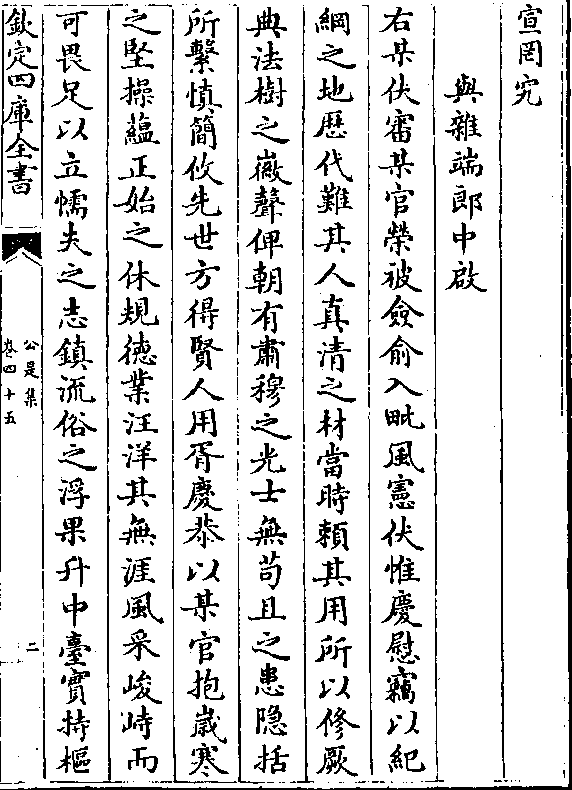 宣罔究
與雜端郎中啟
右某伏審某官榮被僉俞入毗風憲伏惟慶慰竊以紀
綱之地歴代難其人真清之材當時頼其用所以修厥
典法樹之徽聲俾朝有肅穆之光士無苟且之患隐括
所繫慎簡攸先世方得賢人用胥慶恭以某官抱嵗寒
之堅操蘊正始之休規德業汪洋其無涯風采峻峙而
可畏足以立懦夫之志鎮流俗之浮果升中臺實持樞
欽定四庫全書
公是集
卷四十五
二